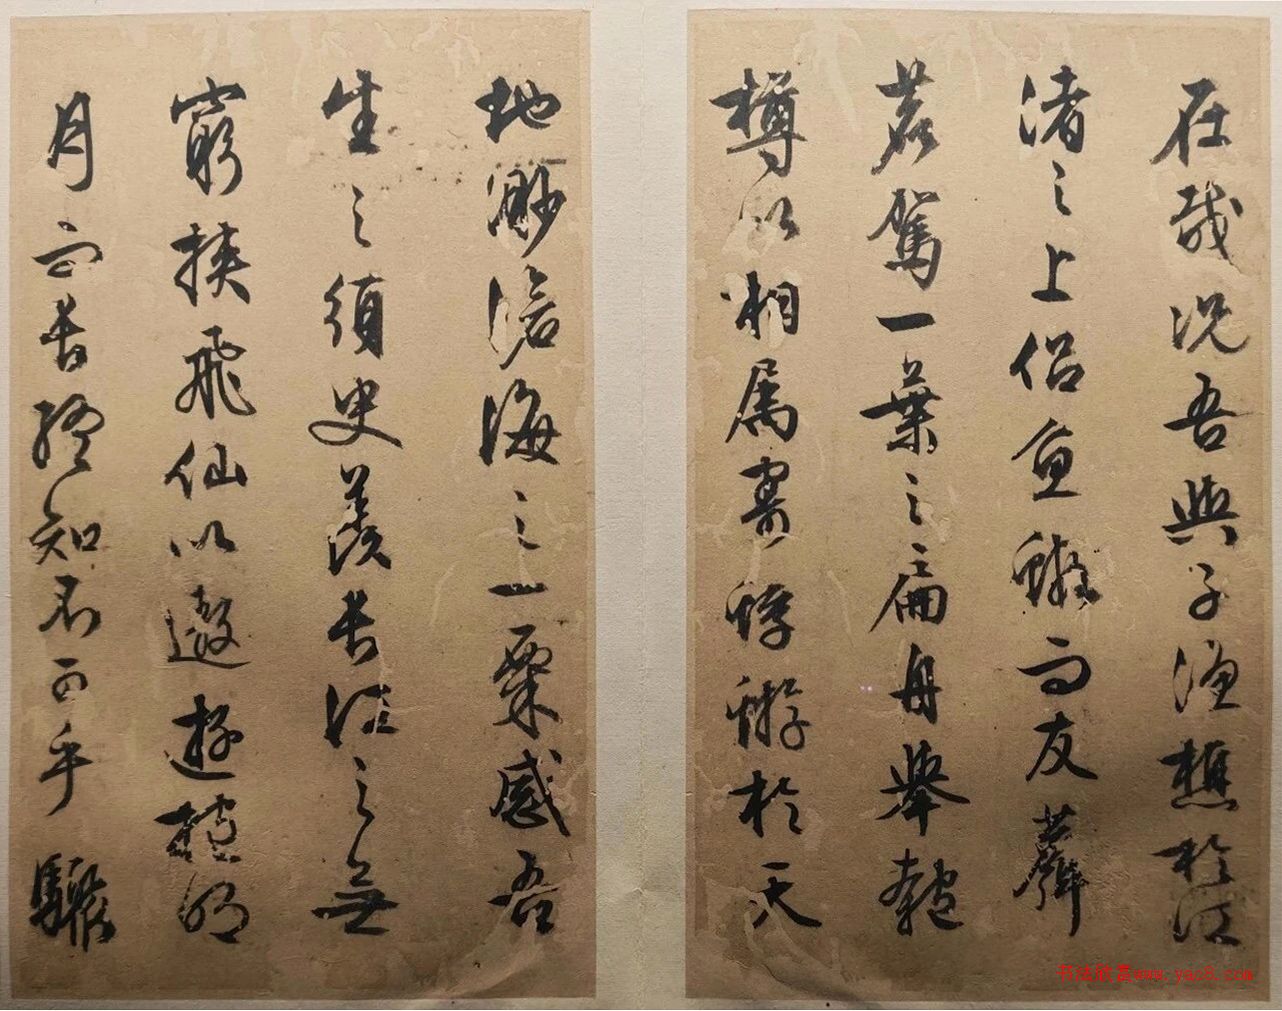 在哉况吾與子漁樵於江
渚之上侣魚蝦而友麋
鹿駕一葉之扁舟舉匏
樽以相属寄蜉蝣於天
地渺滄海之一粟感吾
生之須臾羨長江之無
窮挾飛仙以遨遊抱明
月而長終知不可乎驟
书法欣赏www.yac8.com